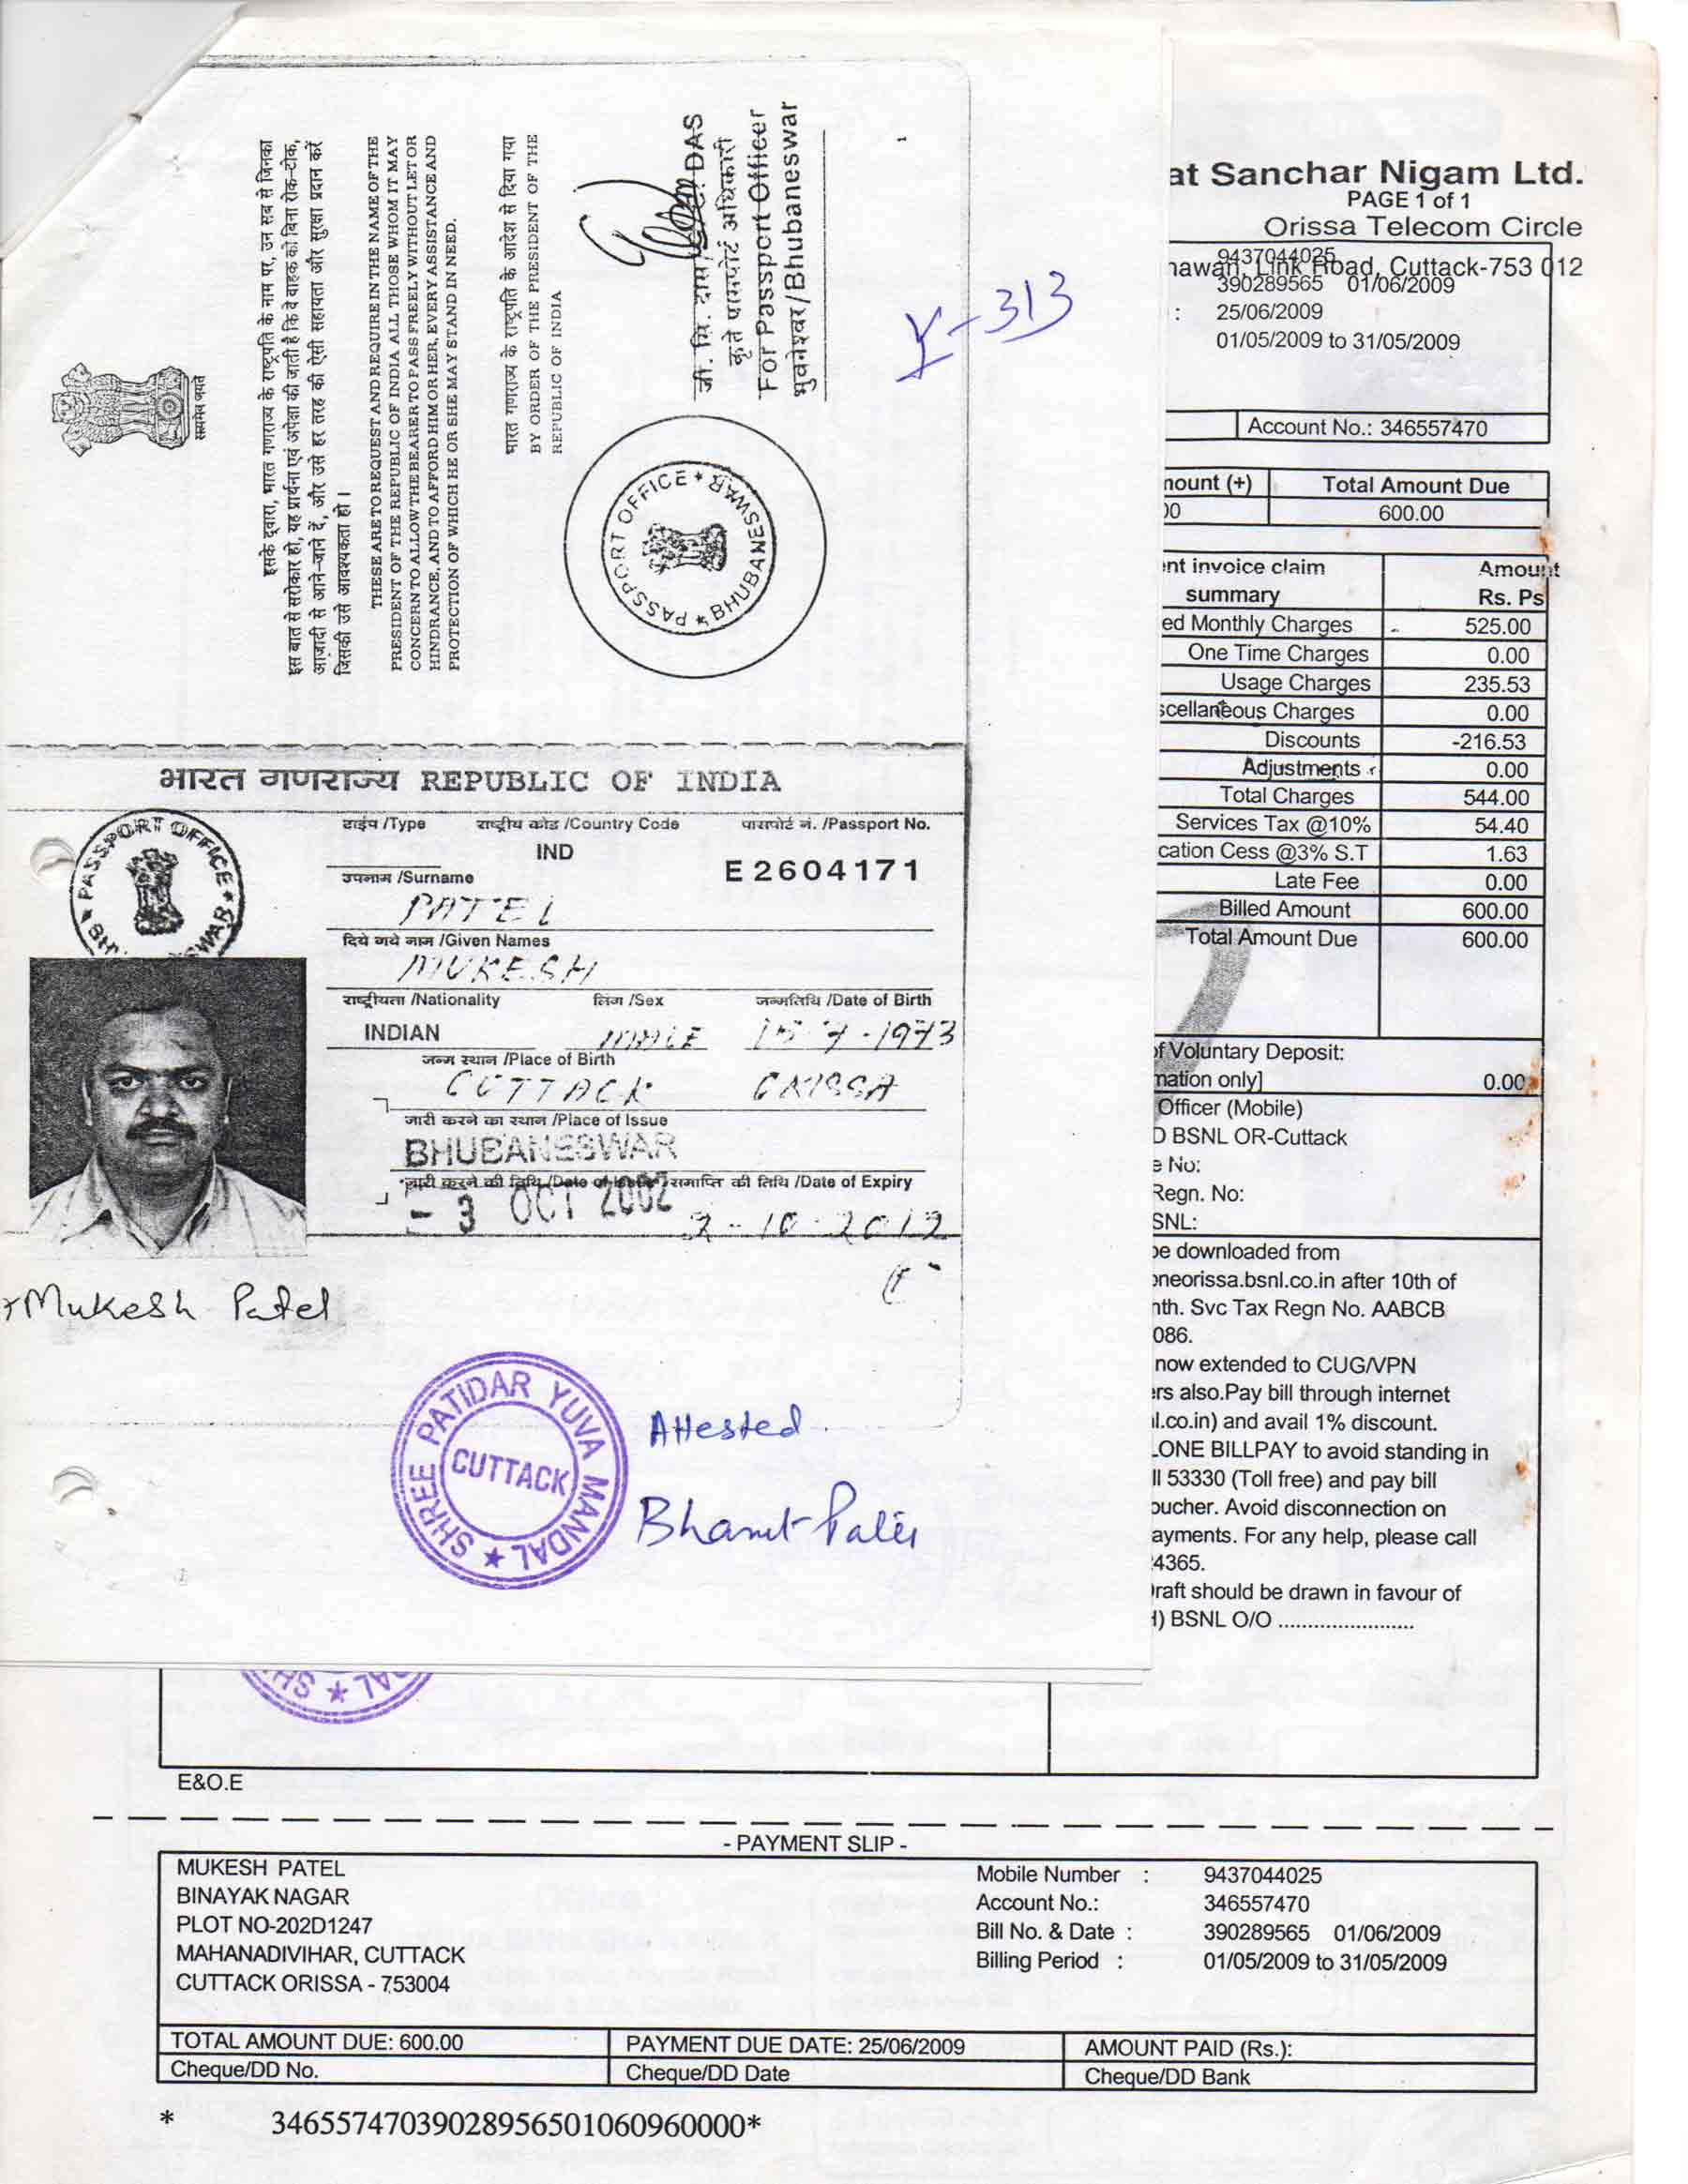 सत्यमेव जयते
इसके द्वारा, भारत गणराज्य के राष्ट्रपति के नाम पर, उन सब से जिनका
इस बात से सरोकार हो, यह प्रार्थना एवं अपेक्षा की जाती है कि वे वाहक को बिना रोक-टोक,
आज़ादी से आने-जाने दें, और उसे हर तरह की ऐसी सहायता और सुरक्षा प्रदान करें
जिसकी उसे आवश्यकता हो।
THESE ARE TO REQUEST AND REQUIRE IN THE NAME OF THE
PRESIDENT OF THE REPUBLIC OF INDIA ALL THOSE WHOM IT MAY
CONCERN TO ALLOW THE BEARER TO PASS FREELY WITHOUT LET OR
HINDRANCE, AND TO AFFORD HIM OR HER, EVERY ASSISTANCE AND
PROTECTION OF WHICH HE OR SHE MAY STAND IN NEED.
भारत गणराज्य के राष्ट्रपति के आदेश से दिया गया
BY ORDER OF THE PRESIDENT OF THE
REPUBLIC OF INDIA
जी. सि. दास DAS
कृते पासपोर्ट अधिकारी
For Passport Officer
भुवनेश्वर/Bhubaneswar
PASSPORT OFFICE * BHUBANESWAR *
1
Y-313
भारत गणराज्य REPUBLIC OF INDIA
PASSPORT OFFICE
टाईप /Type राष्ट्रीय कोड /Country Code पासपोर्ट नं. /Passport No.
IND E2604171
उपनाम /Surname
PATEL
दिये गये नाम /Given Names
MUKESH
राष्ट्रीयता /Nationality लिंग /Sex जन्मतिथि /Date of Birth
INDIAN MALE 15-7-1973
जन्म स्थान /Place of Birth
CUTTACK ORISSA
जारी करने का स्थान /Place of Issue
BHUBANESWAR
जारी करने की तिथि /Date of Issue समाप्ति की तिथि /Date of Expiry
- 3 OCT 2002 2-10-2012
Mukesh Patel
SHREE PATIDAR YUVA MANDAL *
CUTTACK
Attested
Patel
at Sanchar Nigam Ltd.
PAGE 1 of 1
Orissa Telecom Circle
9437044025
nawan, Link Road, Cuttack-753 012
390289565 01/06/2009
: 25/06/2009
01/05/2009 to 31/05/2009
Account No.: 346557470
nount (+) Total Amount Due
00 600.00
nt invoice claim Amount
summary Rs. Ps
ed Monthly Charges 525.00
One Time Charges 0.00
Usage Charges 235.53
scellaneous Charges 0.00
Discounts -216.53
Adjustments 0.00
Total Charges 544.00
Services Tax @10% 54.40
cation Cess @3% S.T 1.63
Late Fee 0.00
Billed Amount 600.00
Total Amount Due 600.00
of Voluntary Deposit:
mation only] 0.00
Officer (Mobile)
O BSNL OR-Cuttack
e No:
Regn. No:
SNL:
be downloaded from
oneorissa.bsnl.co.in after 10th of
nth. Svc Tax Regn No. AABCB
086.
now extended to CUG/VPN
ers also.Pay bill through internet
l.co.in) and avail 1% discount.
LONE BILLPAY to avoid standing in
ll 53330 (Toll free) and pay bill
oucher. Avoid disconnection on
ayments. For any help, please call
4365.
raft should be drawn in favour of
H) BSNL O/O ........................
E&O.E
- PAYMENT SLIP -
MUKESH PATEL Mobile Number : 9437044025
BINAYAK NAGAR Account No.: 346557470
PLOT NO-202D1247 Bill No. & Date : 390289565 01/06/2009
MAHANADIVIHAR, CUTTACK Billing Period : 01/05/2009 to 31/05/2009
CUTTACK ORISSA - 753004
TOTAL AMOUNT DUE: 600.00 PAYMENT DUE DATE: 25/06/2009 AMOUNT PAID (Rs.):
Cheque/DD No. Cheque/DD Date Cheque/DD Bank
* 34655747039028956501060960000*